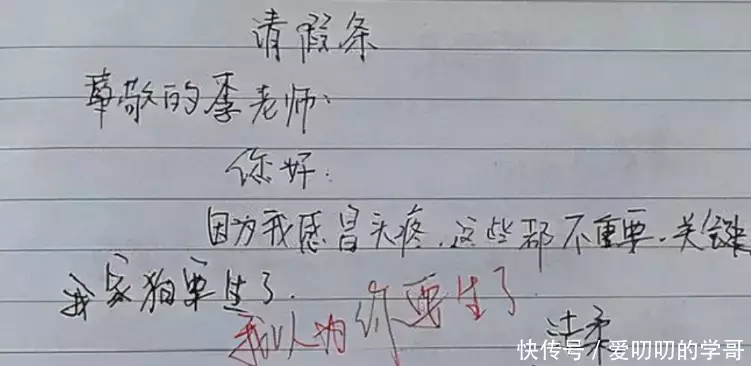 请假条
尊敬的李老师:
你好:
因为我感冒头疼.这些都不重要.关键
我家狗要生了.
我以为你要生了
快传号/爱叨叨的学哥